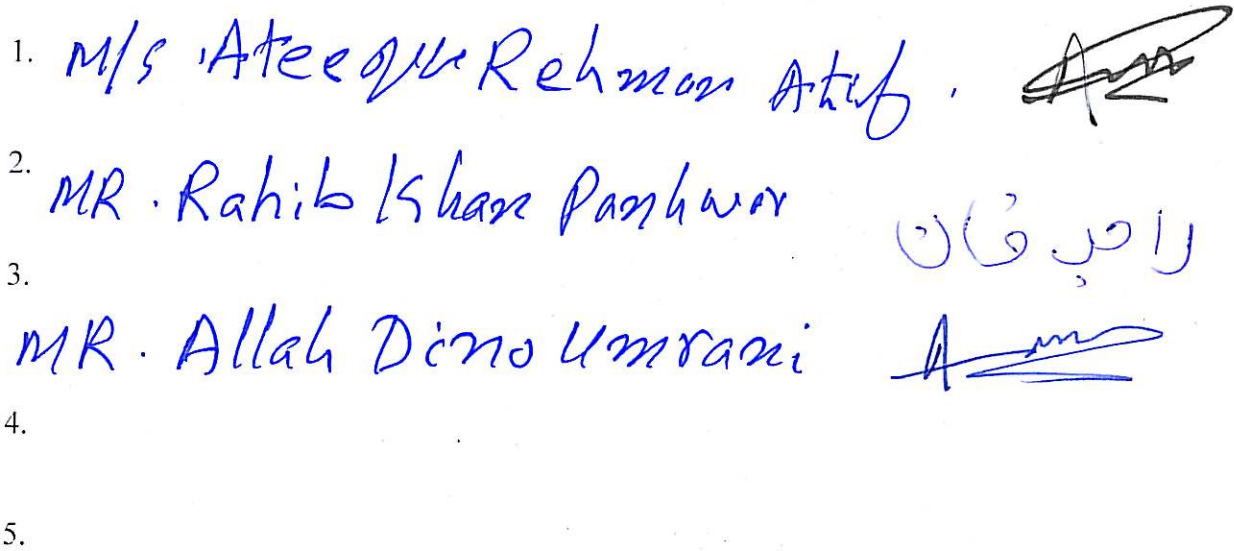 1. M/s Ateeque Rehman Atif.
2. MR. Rahib Khan Panhwar
راحب خان
3.
MR. Allah Dino Umrani
4.
5.